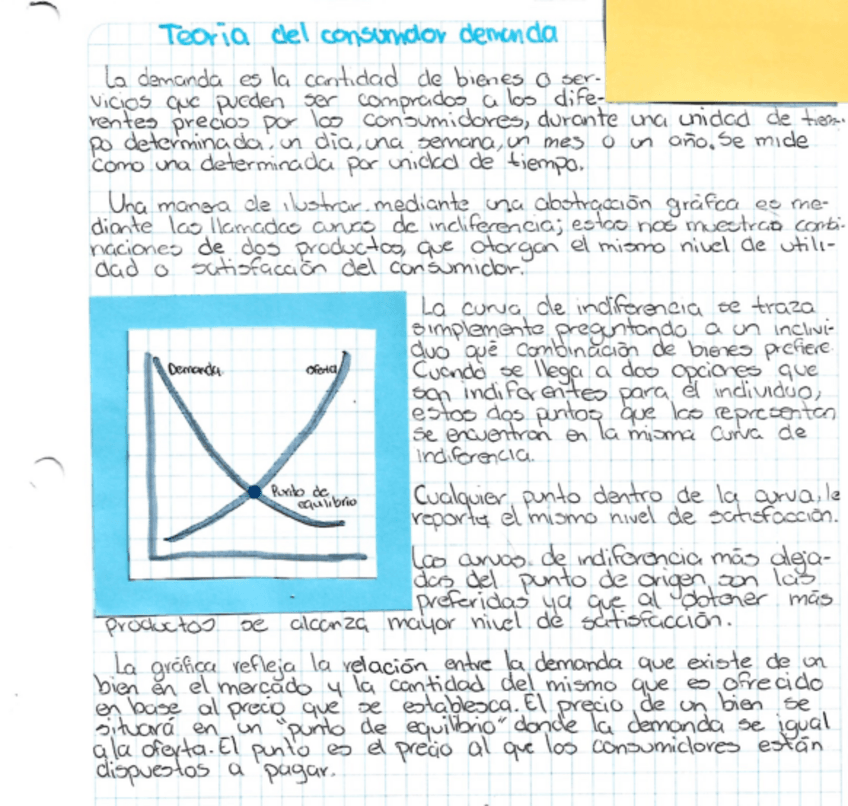 Teoria del consumidor demanda
La demanda es la cantidad de bienes o ser-
vicios que pueden ser comprados a los dife-
rentes precios por los consumidores, durante una unidad de tiem-
po determinada, un día, una semana, un mes o un año. Se mide
como una determinada por unidad de tiempo.
Una manera de ilustrar mediante una abstracción gráfca es me-
diante las llamadas curvas de indiferencia; estas nos muestran combi-
naciones de dos productos, que otorgan el mismo nivel de utili-
dad o satisfacción del consumidor.
La curva de indiferencia se traza
simplemente preguntando a un indivi-
duo qué combinación de bienes prefiere.
Cuando se llega a dos opciones que
son indiferentes para el individuo,
estos dos puntos que las representan
se encuentran en la misma curva de
indiferencia.
Demanda
Oferta
Punto de
equilibrio
Cualquier punto dentro de la curva, le
reporta el mismo nivel de satisfacción.
Las curvas de indiferencia más aleja-
das del punto de origen son las
preferidas ya que al obtener más
productos se alcanza mayor nivel de satisfacción.
La gráfica refleja la relación entre la demanda que existe de un
bien en el mercado y la cantidad del mismo que es ofrecido
en base al precio que se establesca. El precio de un bien se
situará en un "punto de equilibrio" donde la demanda se igual
a la oferta. El punto es el precio al que los consumidores están
dispuestos a pagar.